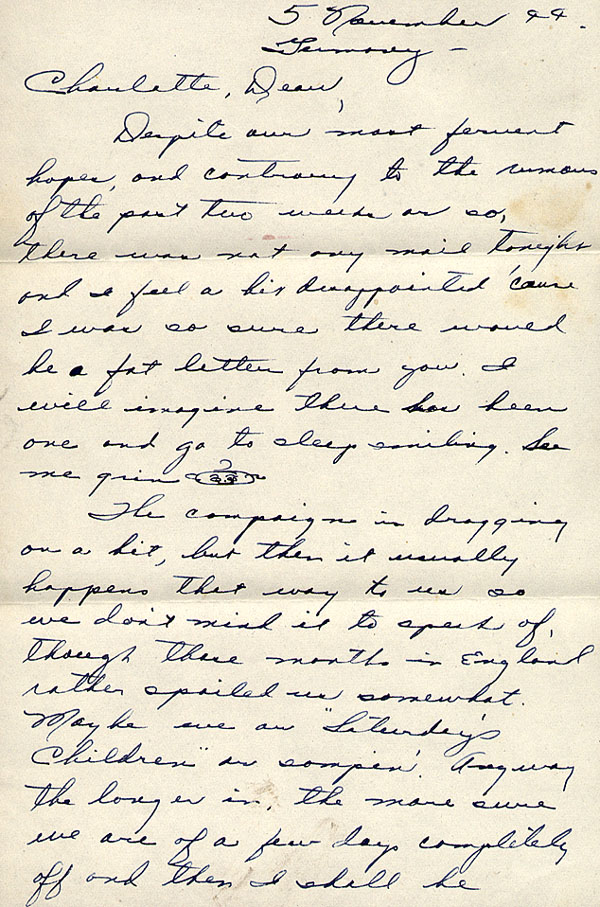 5 November 44.
Germany –
Charlotte, Dear,
Despite our most fervent
hopes, and contrary to the rumors
of the past two weeks or so,
there was not any mail tonight
and I feel a bit disappointed 'cause
I was so sure there would
be a fat letter from you. I
will imagine there has been
one and go to sleep smiling. See
me grin
The campaign is dragging
on a bit, but then it usually
happens that way to us so
we don't mind it to speak of,
though those months in England
rather spoiled us somewhat.
Maybe we are "Saturday's
Children" or sompin'. Anyway
the longer in, the more sure
we are of a few days completely
off and then I shall be